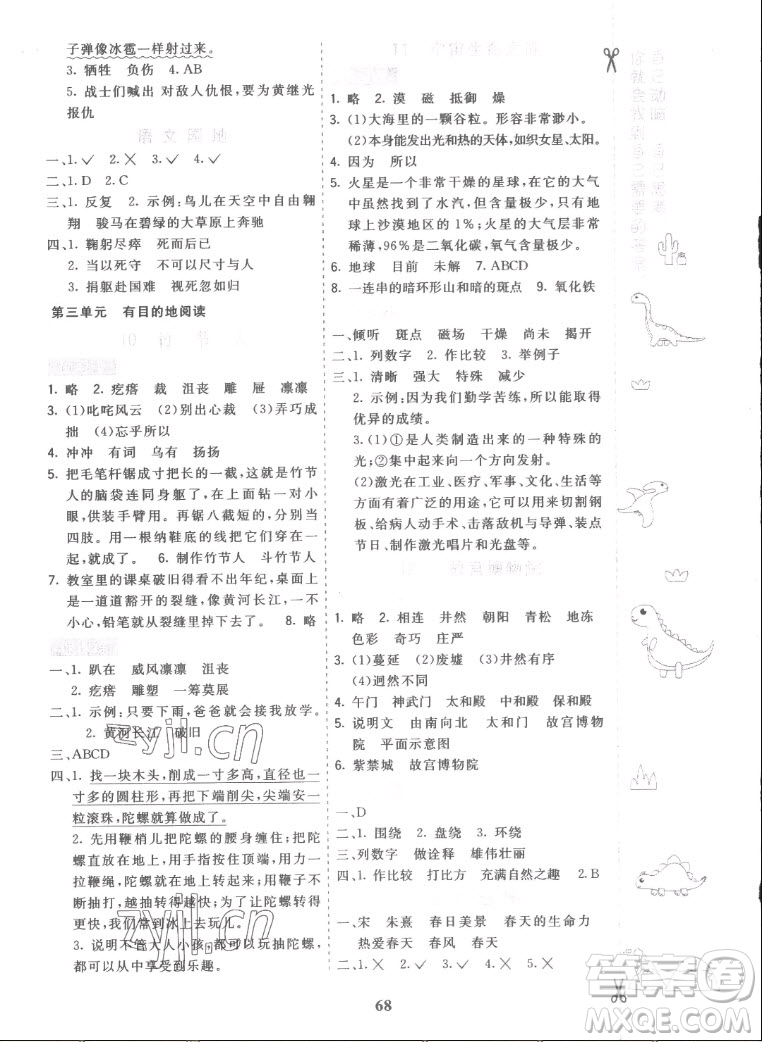 子弹像冰雹一样射过来。
3. 牺牲 负伤 4. AB
5. 战士们喊出 对敌人仇恨 要为黄继光
报仇
语文园地
一、1. ✓ 2. ✕ 3. ✕ 4. ✓
二、1. D 2. C
三、1. 反复 2. 示例：鸟儿在天空中自由翱
翔 骏马在碧绿的大草原上奔驰
四、1. 鞠躬尽瘁 死而后已
2. 当以死守 不可以言传
3. 捐躯赴国难 视死忽如归
第三单元 有目的地阅读
10 竹节人
1. 略 2. 疙瘩 裁 沮丧 雕 屉 凛凛
3. (1)叱咤风云 (2)别出心裁 (3)弄巧成
拙 (4)忘乎所以
4. 冲冲 有词 乌有 扬扬
5. 把毛笔杆锯成寸把长的一截，这就是竹节
人的脑袋连同身躯了，在上面钻一对小
眼，供装手臂用。再锯八截短的，分别当
四肢。用一根纳鞋底的线把它们穿在一
起，就成了。 6. 制作竹节人 斗竹节人
7. 教室里的课桌破旧得看不出年纪，桌面上
是一道道豁开的裂缝，像黄河长江，一不
小心，铅笔就从裂缝里掉下去了。 8. 略
一、1. 趴在 威风凛凛 沮丧
2. 疙瘩 雕塑 一筹莫展
二、1. 示例：只要下雨，爸爸就会接我放学。
2. 黄河长江 破旧
三、ABCD
四、1. 找一块木头，削成一寸多高，直径也一
寸多的圆柱形，再把下端削尖，尖端安一
粒滚珠，陀螺就做成了。
2. 先用鞭梢儿把陀螺的腰身缠住；把陀
螺直放在地上，用手指按住顶端，用力一
拉鞭绳，陀螺就在地上旋转开了，用鞭子
不断抽打，转得越来越快；为了让陀螺不断
转，我们常到冰上去玩儿。
3. 说明不管大人小孩，都可以玩抽陀螺，
都可以从中享受到乐趣。
11 宇宙生命之谜
1. 略 2. 漠 磁 抵御 燥
3. (1)大海里的一颗谷粒。形容非常渺小。
(2)本身能发出光和热的天体，如织女星、太阳。
4. 因为 所以
5. 火星是一个非常干燥的星球，在它的大气
中虽然找到了水汽，但含量极少，只有地
球上沙漠地区的1%；火星的大气非常
稀薄，96%是二氧化碳，氧气含量极少。
6. 地球 目前 未解 7. ABCD
8. 一连串的暗环形山和暗的斑点 9. 氧化铁
一、倾听 斑点 磁场 干燥 尚未 揭开
二、1. 列数字 2. 作比较 3. 举例子
三、1. 清晰 强大 特殊 减少
2. 示例：因为我们勤学苦练，所以能取得
优异的成绩。
3. (1)①是人类制造出来的一种特殊的
光；②集中起来的光具有极大的威力。
(2)激光在工业、医疗、军事、文化、生活等
方面有着广泛的用途，它可以切割钢
板、给病人动手术、击落敌机与导弹、装点
节日、制作激光唱片和光盘等。
故宫博物院
1. 略 2. 相连 井然 朝阳 青松 地冻
色彩 奇巧 庄严
3. (1)蔓延 (2)废墟 (3)井然有序
(4)迥然不同
4. 午门 神武门 太和殿 中和殿 保和殿
5. 说明文 由南向北 太和门 故宫博物
院 平面示意图
6. 紫禁城 故宫博物院
一、D
二、1. 围绕 2. 盘绕 3. 环绕
三、列数字 做诠释 雄伟壮丽
四、1. 作比较 打比方 充满自然之趣 2. B
一、宋 朱熹 春日美景 春天的生命力
热爱春天 春风 春天
二、1. ✓ 2. ✓ 3. ✕ 4. ✓
68
zyjl.cn
zyjl.cn
答案圈
MXQE.COM